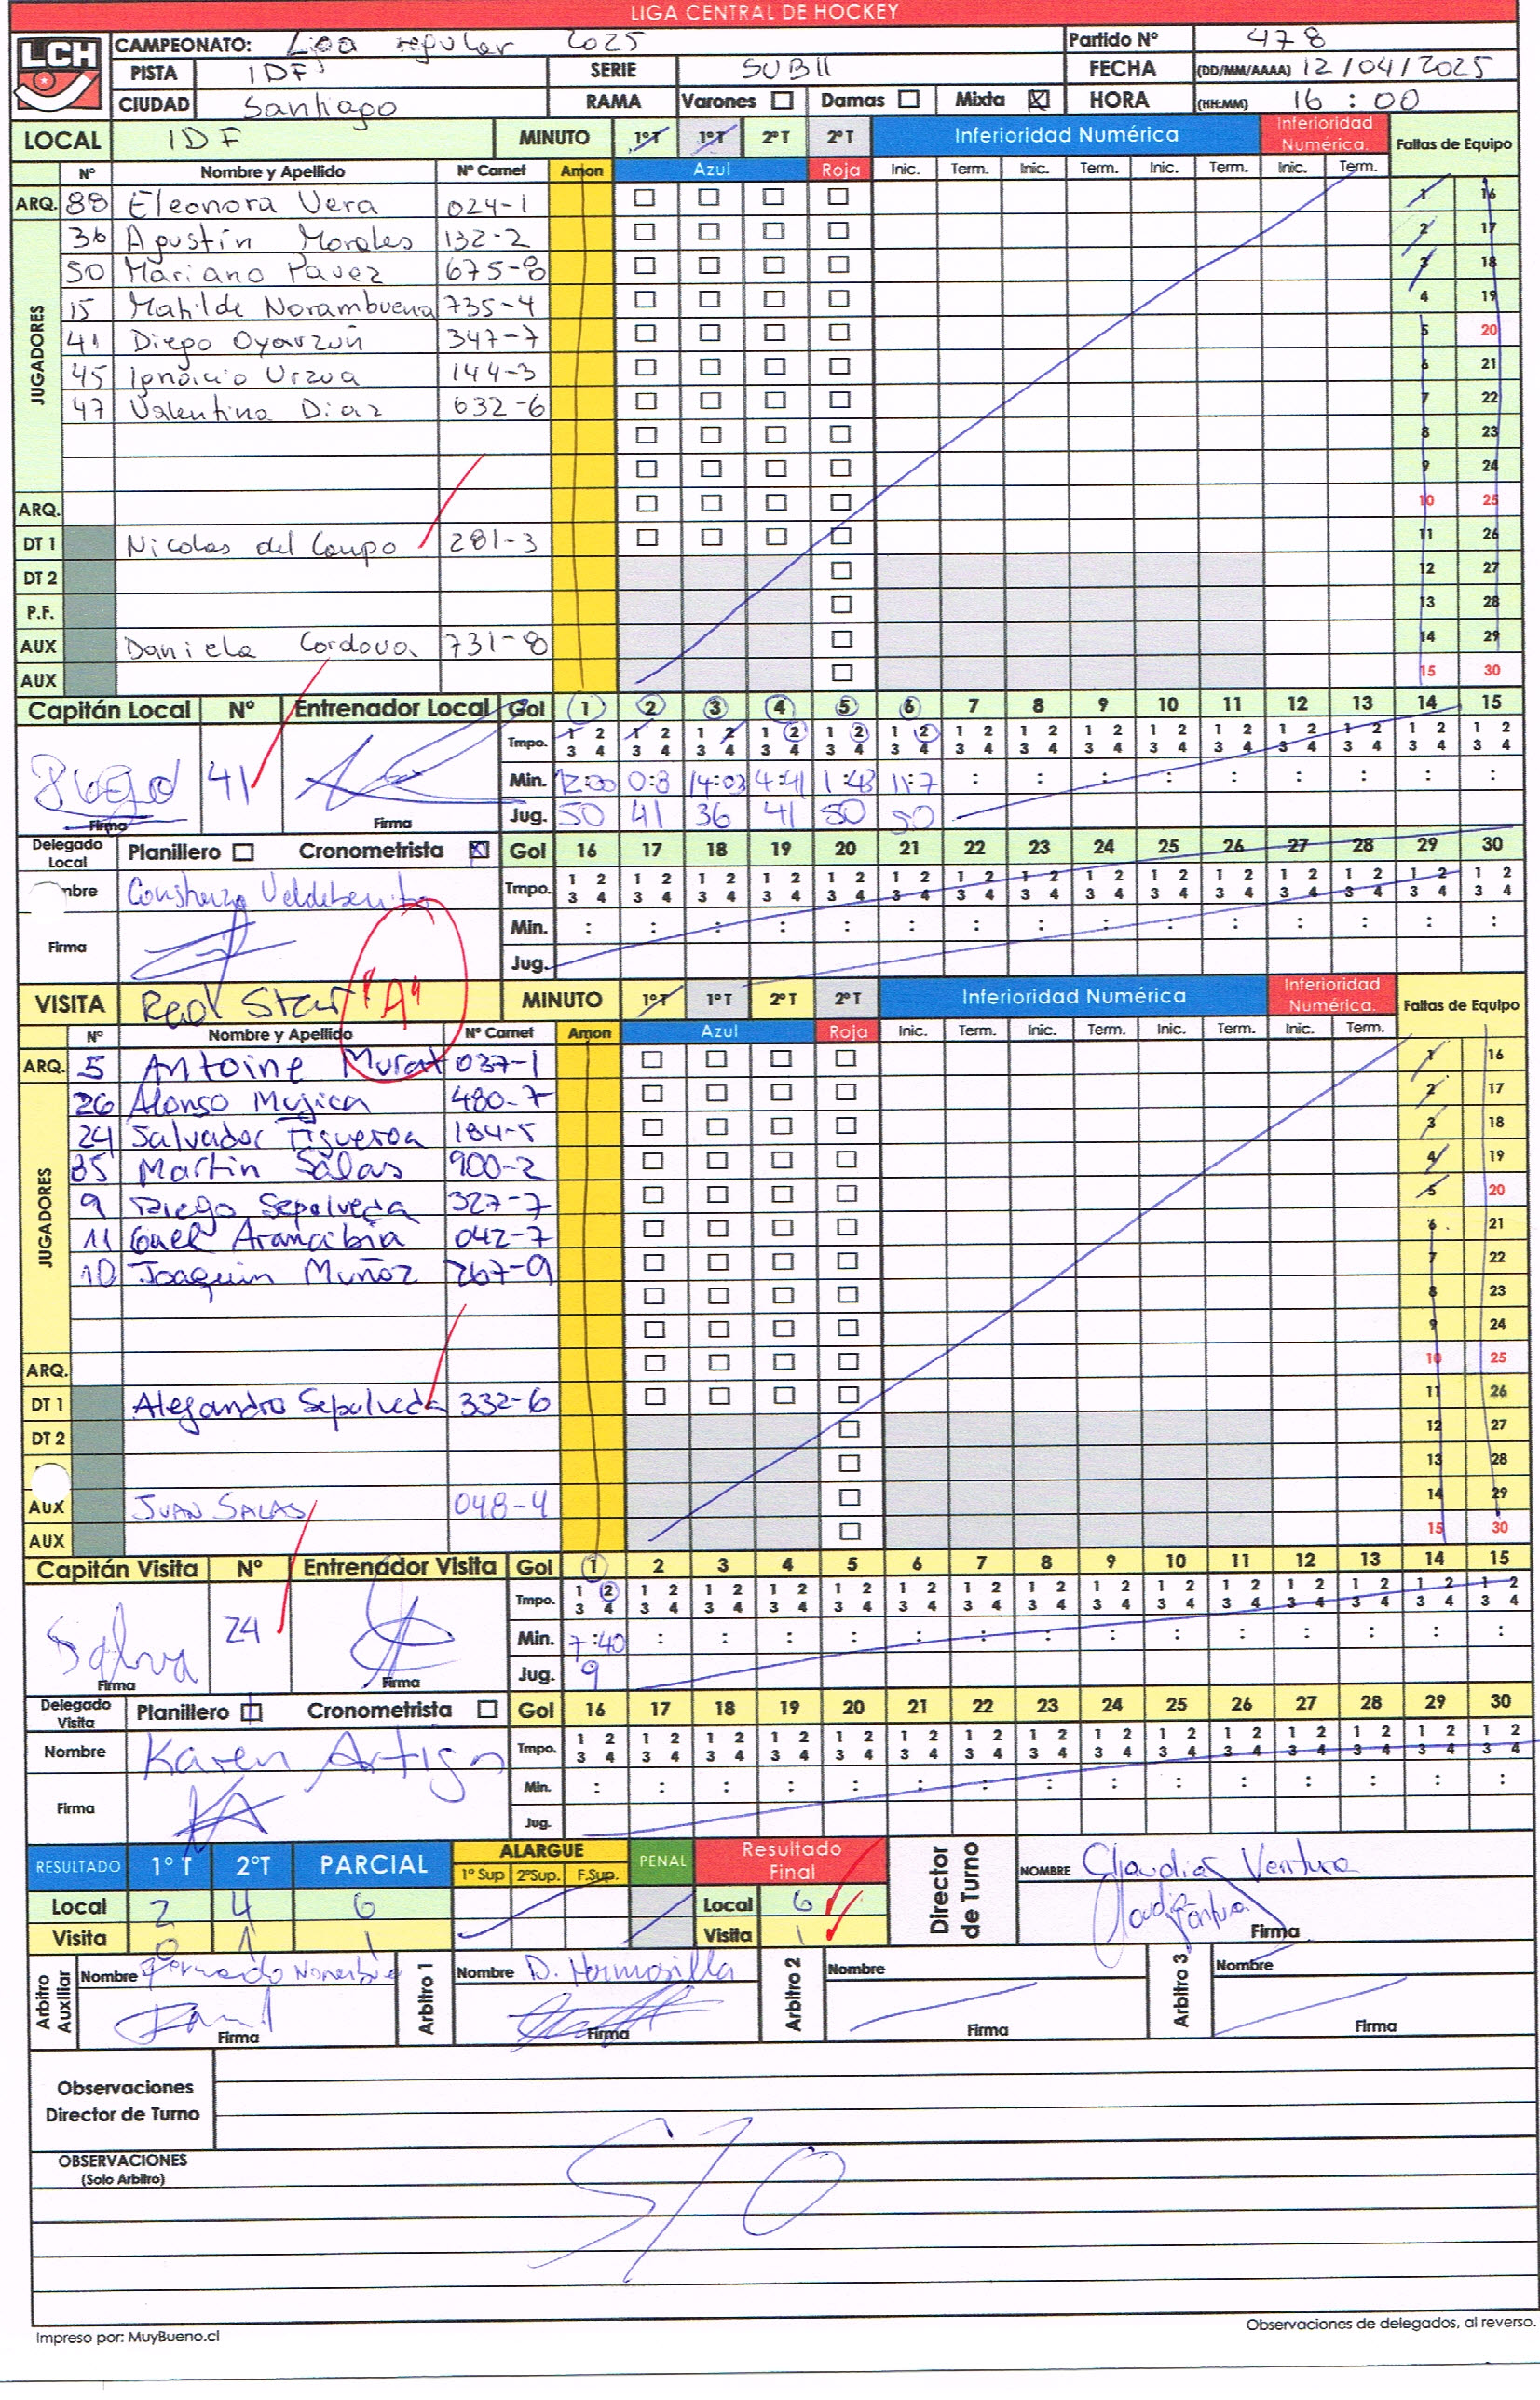 LIGA CENTRAL DE HOCKEY
LCH
CAMPEONATO: Liga regular 2025 Partido Nº 478
PISTA IDF SERIE SUB11 FECHA (DD/MM/AAAA) 12/04/2025
CIUDAD Santiago RAMA Varones Damas Mixta HORA (HH:MM) 16:00
LOCAL IDF MINUTO 1ºT 1ºT 2ºT 2ºT Inferioridad Numérica Inferioridad Numérica. Faltas de Equipo
Nº Nombre y Apellido Nº Carnet Amon Azul Roja Inic. Term. Inic. Term. Inic. Term. Inic. Term.
ARQ. 88 Eleonora Vera 024-1 1 16
JUGADORES
36 Agustín Morales 132-2 2 17
50 Mariano Pavez 675-8 3 18
15 Matilde Norambuena 735-4 4 19
41 Diego Oyarzún 347-7 5 20
45 Ignacio Urzua 144-3 6 21
47 Valentina Diaz 632-6 7 22
8 23
9 24
ARQ. 10 25
DT 1 Nicolas del Campo 281-3 11 26
DT 2 12 27
P.F. 13 28
AUX Daniela Cordova 731-8 14 29
AUX 15 30
Capitán Local Nº Entrenador Local Gol 1 2 3 4 5 6 7 8 9 10 11 12 13 14 15
Tmpo. 1 2 1 2 1 2 1 2 1 2 1 2 1 2 1 2 1 2 1 2 1 2 1 2 1 2 1 2 1 2
3 4 3 4 3 4 3 4 3 4 3 4 3 4 3 4 3 4 3 4 3 4 3 4 3 4 3 4 3 4
41 Min. 12:00 0:8 14:03 4:41 1:48 11:7 : : : : : : : : :
Firma Firma Jug. 50 41 36 41 50 50
Delegado Local Planillero Cronometrista Gol 16 17 18 19 20 21 22 23 24 25 26 27 28 29 30
Nombre Tmpo. 1 2 1 2 1 2 1 2 1 2 1 2 1 2 1 2 1 2 1 2 1 2 1 2 1 2 1 2 1 2
3 4 3 4 3 4 3 4 3 4 3 4 3 4 3 4 3 4 3 4 3 4 3 4 3 4 3 4 3 4
Firma Min. : : : : : : : : : : : : : : :
Jug.
VISITA Red Star "A" MINUTO 1ºT 1ºT 2ºT 2ºT Inferioridad Numérica Inferioridad Numérica. Faltas de Equipo
Nº Nombre y Apellido Nº Carnet Amon Azul Roja Inic. Term. Inic. Term. Inic. Term. Inic. Term.
ARQ. 5 Antoine Murat 037-1 1 16
JUGADORES
26 Alonso Mujica 480-7 2 17
24 Salvador Figueroa 184-5 3 18
85 Martin Salas 900-2 4 19
9 Diego Sepulveda 327-7 5 20
11 Arancibia 042-7 6 21
10 Joaquin Muñoz 267-9 7 22
8 23
9 24
ARQ. 10 25
DT 1 Alejandro Sepulveda 332-6 11 26
DT 2 12 27
13 28
AUX JUAN SALAS 048-4 14 29
AUX 15 30
Capitán Visita Nº Entrenador Visita Gol 1 2 3 4 5 6 7 8 9 10 11 12 13 14 15
Tmpo. 1 2 1 2 1 2 1 2 1 2 1 2 1 2 1 2 1 2 1 2 1 2 1 2 1 2 1 2 1 2
3 4 3 4 3 4 3 4 3 4 3 4 3 4 3 4 3 4 3 4 3 4 3 4 3 4 3 4 3 4
Salva 24 Min. 7:40 : : : : : : : : : : : : : :
Firma Firma Jug. 9
Delegado Visita Planillero Cronometrista Gol 16 17 18 19 20 21 22 23 24 25 26 27 28 29 30
Nombre Karen Artigo Tmpo. 1 2 1 2 1 2 1 2 1 2 1 2 1 2 1 2 1 2 1 2 1 2 1 2 1 2 1 2 1 2
3 4 3 4 3 4 3 4 3 4 3 4 3 4 3 4 3 4 3 4 3 4 3 4 3 4 3 4 3 4
Firma KA Min. : : : : : : : : : : : : : : :
Jug.
RESULTADO 1º T 2ºT PARCIAL ALARGUE 1º Sup 2ºSup. F.Sup. PENAL Resultado Final Director de Turno NOMBRE Claudia Ventura
Local 2 4 6 Local 6
Visita 0 1 1 Visita 1 Claudia Ventura Firma
Arbitro Auxiliar Nombre Arbitro 1 Nombre D. Hermosilla Arbitro 2 Nombre Arbitro 3 Nombre
Firma Firma Firma Firma
Observaciones Director de Turno
OBSERVACIONES (Solo Arbitro)
S/O
Impreso por: MuyBueno.cl Observaciones de delegados, al reverso.